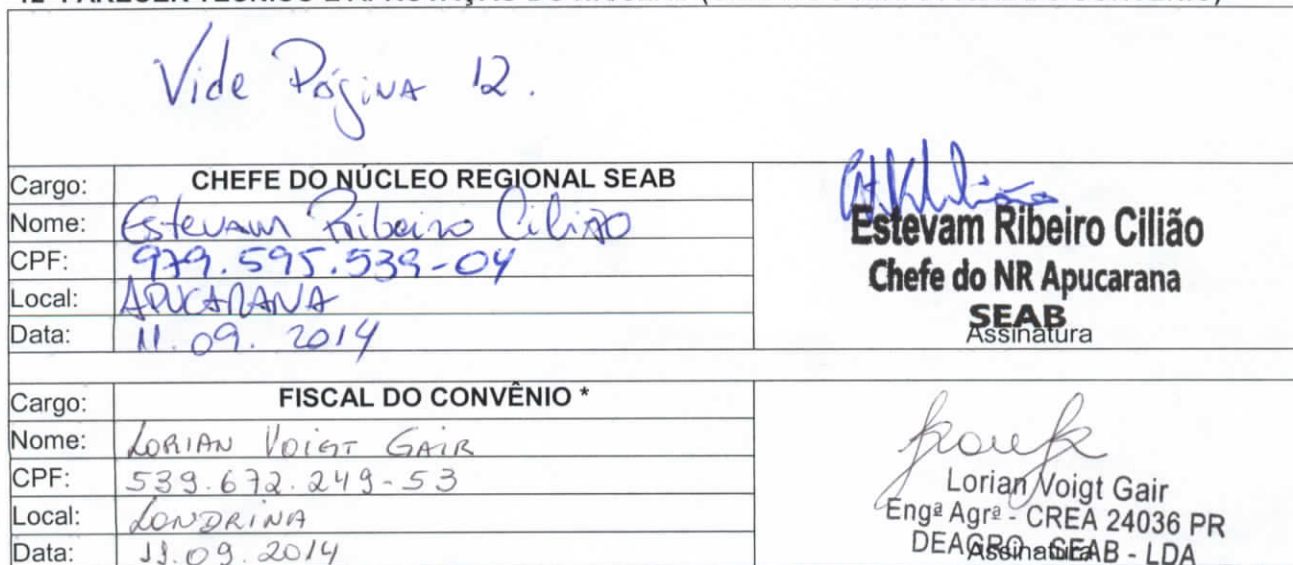 Vide Página 12.
Cargo: CHEFE DO NÚCLEO REGIONAL SEAB
Nome: Estevam Ribeiro Cilião
CPF: 979.595.539-04
Local: APUCARANA
Data: 11.09.2014
Estevam Ribeiro Cilião
Chefe do NR Apucarana
SEAB
Assinatura
Cargo: FISCAL DO CONVÊNIO *
Nome: LORIAN VOIGT GAIR
CPF: 539.672.249-53
Local: LONDRINA
Data: 11.09.2014
Lorian Voigt Gair
Engª Agrª - CREA 24036 PR
DEAGRO - SEAB - LDA
Assinatura